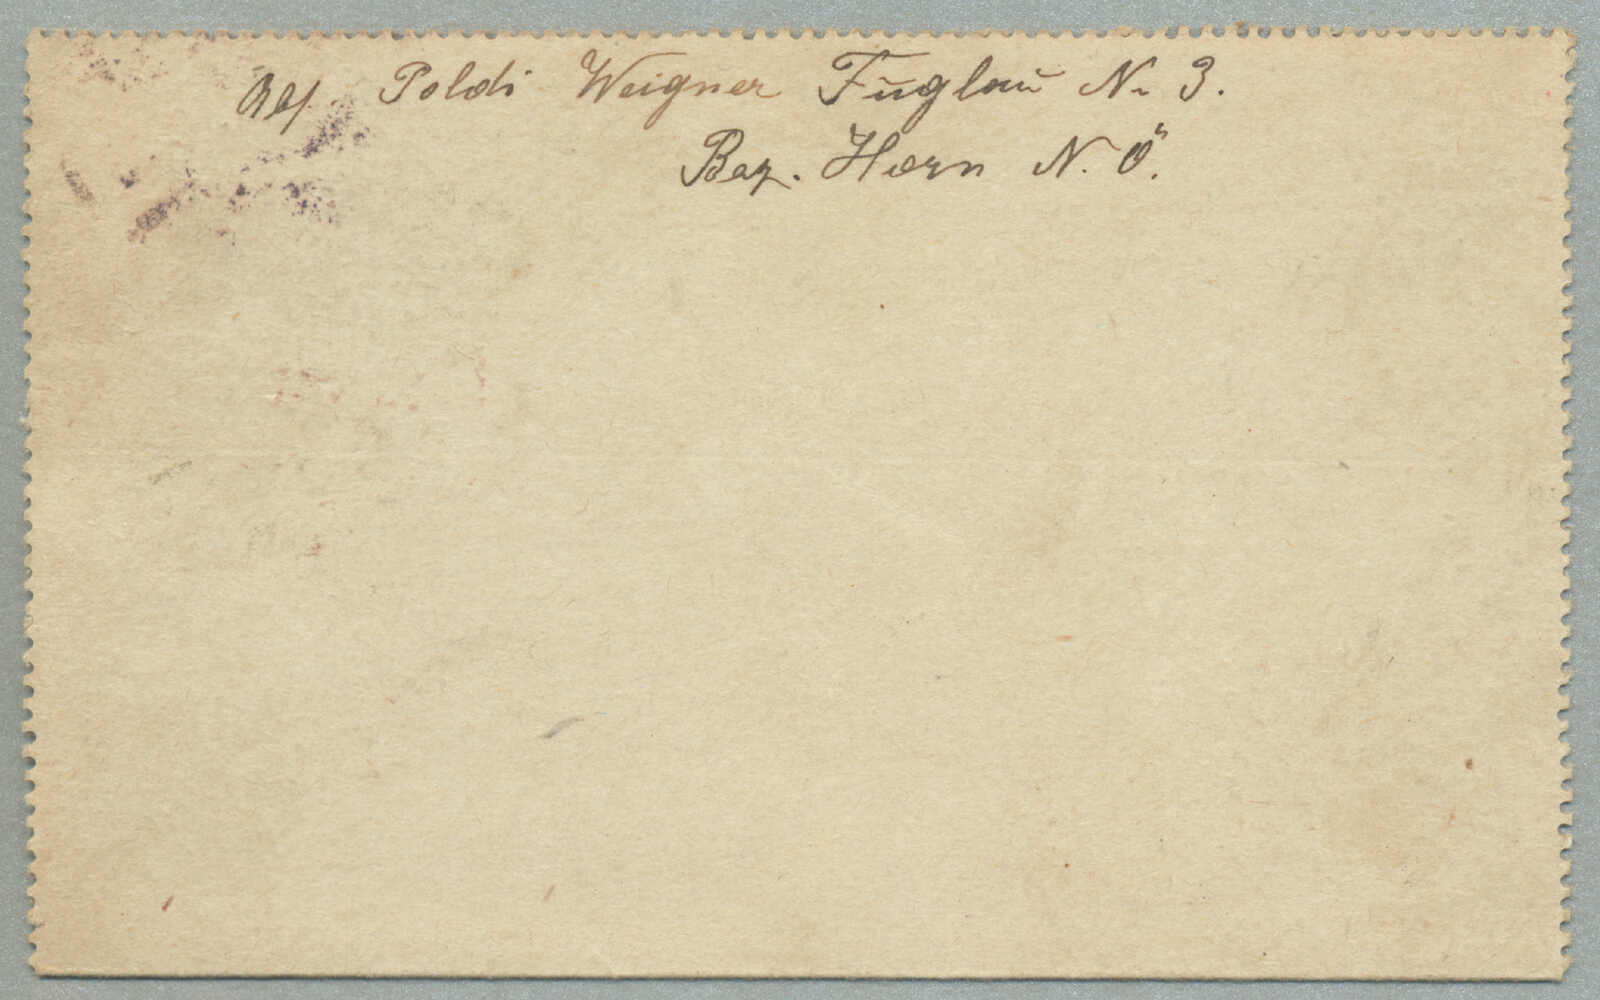 Abs Poldi Weigner Fuglau Nr 3.
Bez. Horn N. Ö.